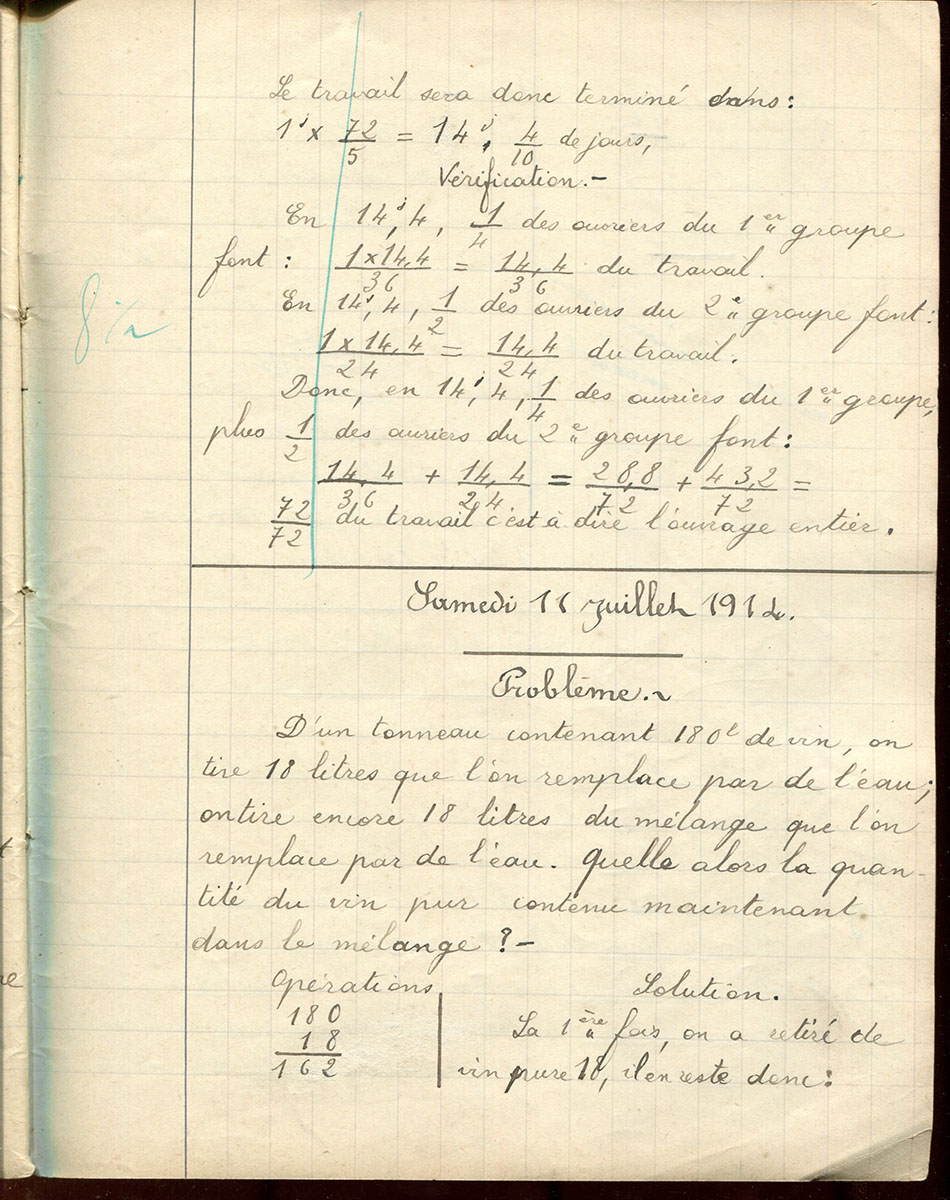 Le travail sera donc terminé dans:
1ʲ × 72/5 = 14ʲ, 4/10 de jours,
Vérification.-
En 14ʲ,4, 1/4 des ouvriers du 1er groupe
font: 1×14,4/36 = 14,4/36 du travail.
En 14ʲ,4, 1/2 des ouvriers du 2e groupe font:
1×14,4/24 = 14,4/24 du travail.
Donc, en 14ʲ,4, 1/4 des ouvriers du 1er groupe,
plus 1/2 des ouvriers du 2e groupe font:
14,4/36 + 14,4/24 = 28,8/72 + 43,2/72 =
72/72 du travail c'est à dire l'ouvrage entier.
8 1/2
Samedi 11 Juillet 1914.
Problème.~
D'un tonneau contenant 180l de vin, on
tire 18 litres que l'on remplace par de l'eau;
on tire encore 18 litres du mélange que l'on
remplace par de l'eau. Quelle alors la quan-
tité du vin pur contenu maintenant
dans le mélange ?-
Opérations
180
18
162
Solution.
La 1ère fois, on a retiré de
vin pure 18, il en reste donc: